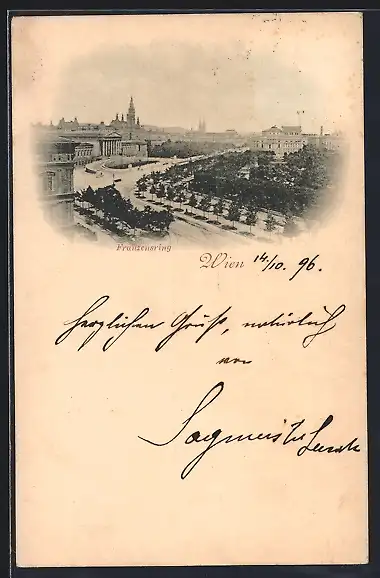 Franzensring
Wien 14/10. 96.
Herzlichen Gruß, natürlich
von
Sagmeister